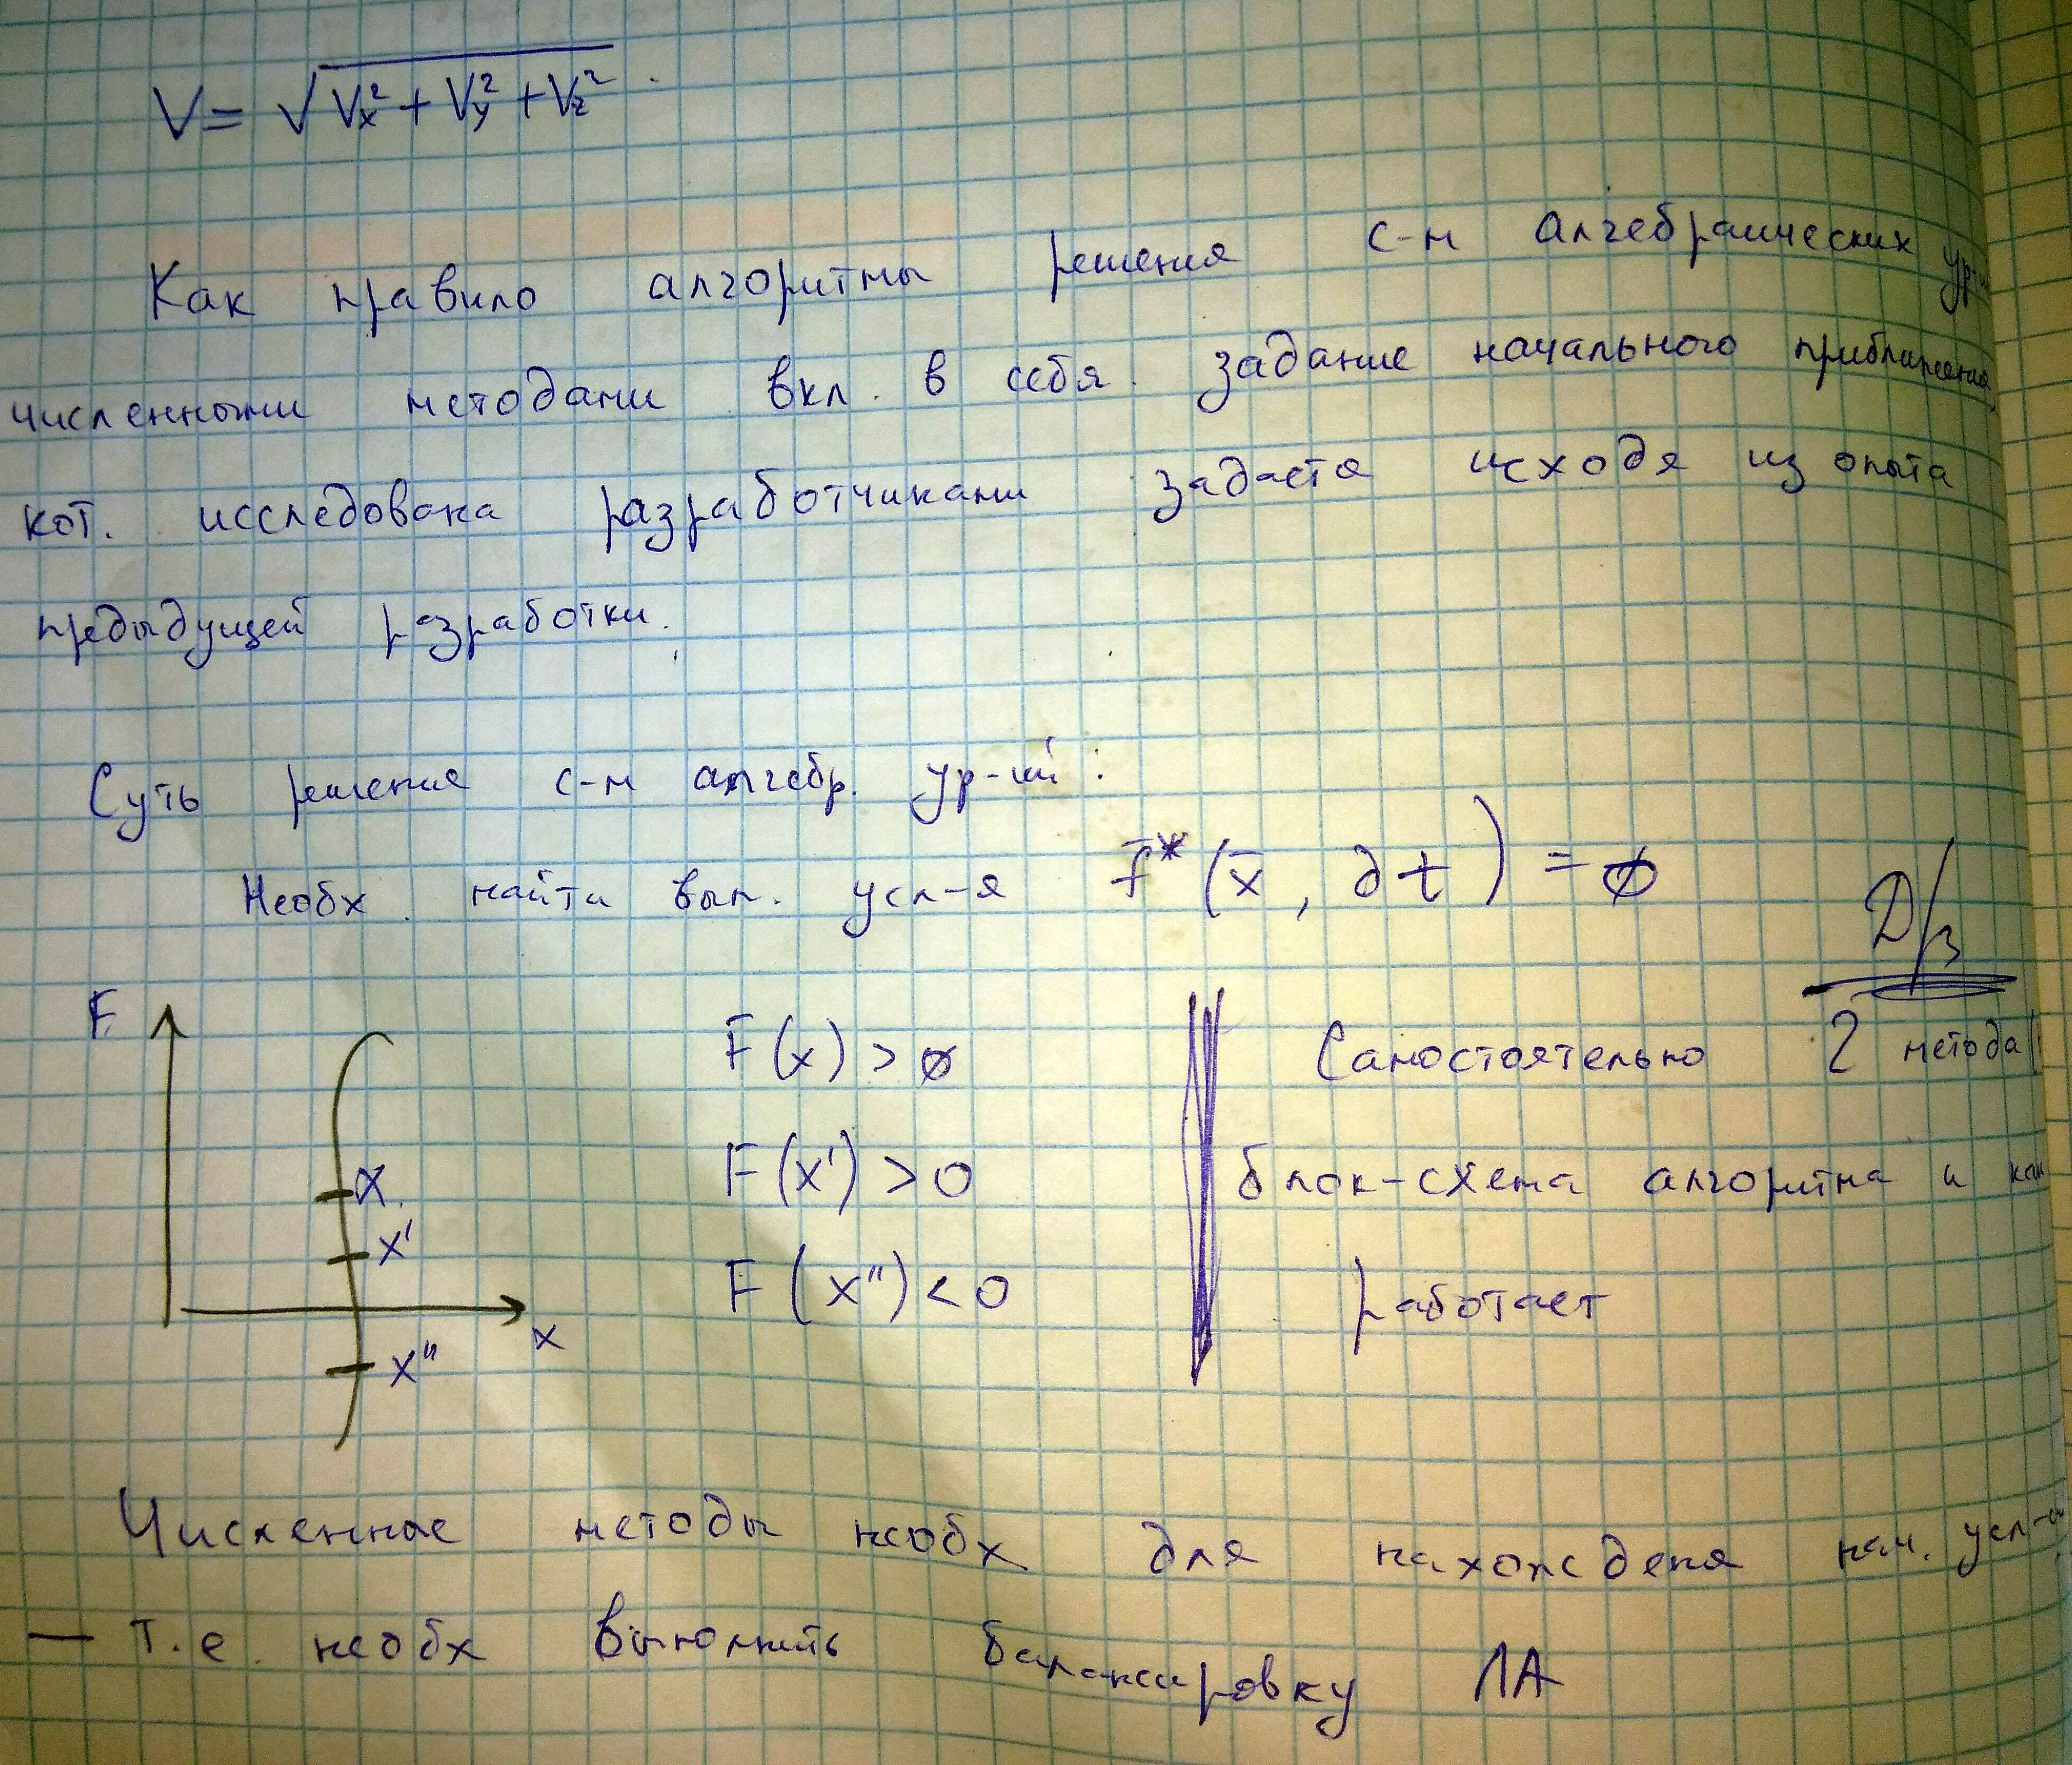 V = √(Vx² + Vy² + Vz²)
Как правило алгоритмы решения с-м алгебраических
численными методами вкл. в себя задание начального приближения,
кот. исследована разработчиками задаетя исходя из опыта
предыдущей разработки.
Суть решения с-м алгебр. ур-ий:
Необх. найти вып. усл-я f̄*(x̄, ∂t) = 0
Д/з
F
F(x) > 0
Самостоятельно 2 метода
x
F(x') > 0
блок-схема алгоритма и как
x'
F(x'') < 0
работает
x
x''
Численные методы необх для нахождения нач. усл-я
— т.е. необх выполнить балансировку ЛА